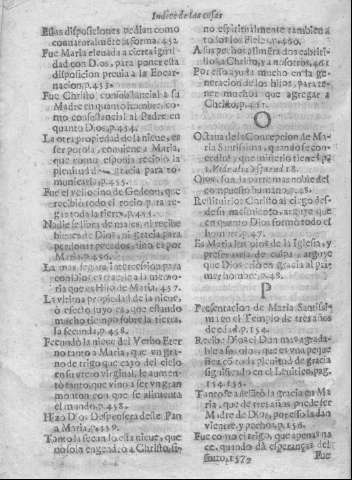 Indice de las cosas
Estas disposiciones pedian como
connaturalmente la forma. 452
Fue Maria eleuada a cierta igual
dad con Dios, para poner esta
disposicion preuia a la Encar
nacion. p.453.
Fue Christo consustancial a su
Madre en quanto hombre, co-
mo consustancial al Padre en
quanto Dios. p.454.
La otra propiedad de la nieue, es
ser porosa, conuiene a Maria,
que como esponja recibio la
plenitud de gracia para co-
municarla. p.455.
Fue el vellocino de Gedeon, que
recibio todo el rocio para re-
gar toda la tierra. p.455.
Nadie se libra de males, ni recibe
bienes de Dios, ni gracia para
perdonar pecados, sino es por
Maria. p.456.
La mas segura intercession para
con Dios es traerle a la memo-
ria que es Hijo de Maria. 457.
La vltima propiedad de la nieue,
o efecto suyo es, que estando
mucho tiempo sobre la tierra,
la fecunda. p.458.
Fecundò la nieue del Verbo Eter
no tanto a Maria, que vn gra-
no de trigo que cayò del cielo
en su vientre virginal, se aumen-
tò tanto, que vino a ser vn gran
monton con que se alimenta
el mundo. p.458.
Hizo Dios Despensera deste Pan
a Maria. p.459.
Tanto la fecundò esta nieue, que
no solo engendrò a Christo, si-
no espiritualmente tambien a
todos los fieles. p.460.
A sus pechos
Christo, y a nosotros. 461
Por esso ayuda mucho en la ge-
neracion de los hijos, para te-
ner muchos que agregar a
Christo. p.461.
O
Octaua de la Concepcion de Ma-
ria Santissima, quando se con-
cedio, y que misterio tiene? p.
1.
Ojos, son la parte mas noble del
compuesto humano. p.48.
Restituir Christo al ciego des-
de su nacimiento, arguye que
en quanto Dios formò todo el
hombre. p.47.
Es Maria los ojos de la Iglesia, y
preseruarla de culpa, arguye
que Dios criò en gracia al pri-
mer hombre. p.48.
P
Presentacion de Maria Santissi-
ma en el Templo de tres años
de edad. p.154.
Recibe Dios el Don mas agrada-
ble a sus ojos, que es vna peque
ña co toda plenitud de gracia
significado en el Leuitico. pag.
154. 155.
Tanto se adelantò la gracia en Ma
ria, que de tres años puede ser
Madre de Dios, por esso la dan
vientre, y pechos. p.156.
Fue como el trigo, que apenas na
ce, quando dà esperanças del
fruto. 157.
Fue